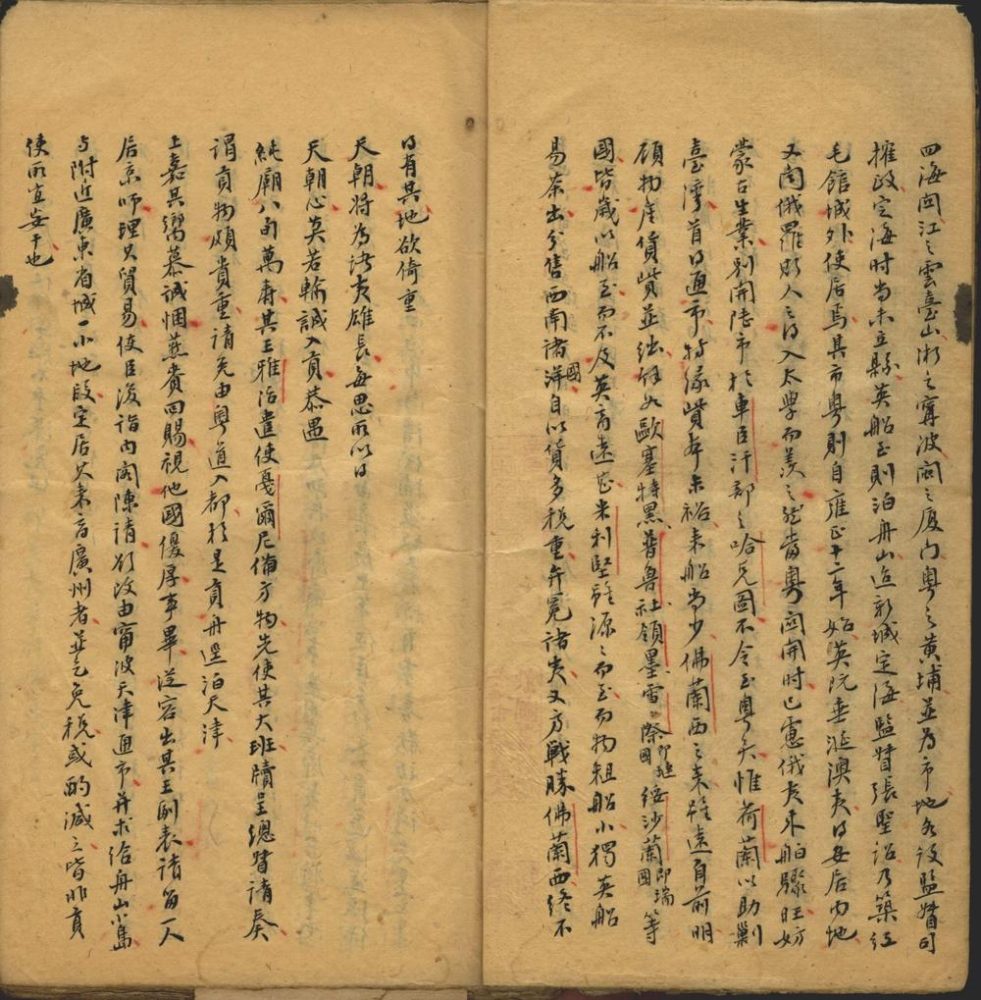 四海關江之雲臺山浙之寧波閩之厦門粤之黃埔並爲市地各設監督司
榷政定海時尚未立縣英船至則泊舟山迨新城定海監督張聖詔乃築红
毛館城外使居焉其市粤則自雍正十二年始英既垂涎澳夷得安居内地
又聞俄羅斯人之得入太學而羡之然當粤關開時已慮俄夷來舶驟旺妨
蒙古生業别開陸市於車臣汗部之哈克圖不令至粤矣惟荷蘭以助剿
臺灣首得通市特緣貲本未裕來船尚少佛蘭西之來雖遠自前明
顧物産貨貲並絀他如歐塞特黑普魯社領墨雷際國即嗹綏沙蘭國即瑞等
國皆歲以船至而不及英商遠甚米利堅雖源源而至而物粗船小獨英船
易茶出分售西南諸洋國自以貨多税重弁冕諸夷又方戰勝佛蘭西終不
得有其地欲倚重
天朝將爲諸夷雄長每思所以得
天朝心英若輸誠入貢恭遇
純廟八旬萬壽其王雅治遣使戞爾尼備方物先使其大班牘呈總督請奏
謂貢物頗貴重請免由粤道入都於是貢舟逕泊天津
上嘉其嚮慕誠悃燕賚回賜視他國優厚事畢從容出其王副表請留一人
居京師理其貿易使臣復詣内閣陳請欲改由甯波天津通市并求給舟山小島
與附近廣東省城一小地段定居其來商廣州者並乞免税或酌減之皆非貢
使所宜妄干也